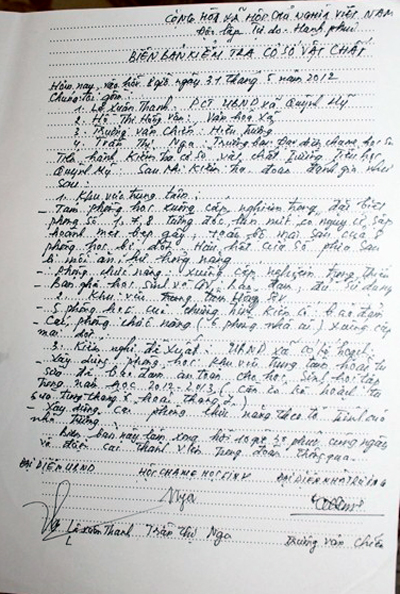 CỘNG HÒA XÃ HỘI CHỦ NGHĨA VIỆT NAM
Độc lập Tự do Hạnh phúc
BIÊN BẢN KIỂM TRA CƠ SỞ VẬT CHẤT
Hôm nay, vào hồi 8 giờ ngày 31 tháng 5 năm 2012
Chúng tôi gồm
1. Lê Xuân Thanh PCT UBND xã Quỳnh Mỹ
2. Hồ Thị Hồng Vân Văn hóa xã
3. Trương Văn Chiến Hiệu trưởng
4. Trần Thị Nga Trưởng ban Đại diện cha mẹ học sinh
Tiến hành kiểm tra cơ sở vật chất trường tiểu học
Quỳnh Mỹ. Sau khi kiểm tra đoàn đánh giá như
sau:
1. Khu vực trung tâm:
- Tám phòng học xuống cấp nghiêm trọng đặc biệt
phòng số 1, 7, 8 tường có nguy cơ sập
gãy, mái sau của 8
phòng học bị dột. Hầu hết cửa sổ phía sau
bị mối ăn hư hỏng nặng
- Phòng chức năng: xuống cấp nghiêm trọng
- Bàn ghế học sinh và GV bảo đảm, đủ sử dụng
2. Khu vực
- 5 phòng học
- phòng chức năng (phòng nhà ở) xuống cấp
3. Kiến nghị đề xuất: UBND xã có kế hoạch:
- Xây dựng phòng học khu vực trung tâm hoặc tu
sửa để bảo đảm an toàn cho học sinh học tập
trong năm học 2012-2013 (cần có kế hoạch tu
sửa trong tháng 6 hoặc tháng 7)
- Xây dựng phòng chức năng theo
nhà trường
Biên bản này làm xong hồi 10 giờ 30 phút cùng ngày
và được các thành viên trong đoàn thông qua.
ĐẠI DIỆN UBND HỘI CHA MẸ HỌC SINH ĐẠI DIỆN NHÀ TRƯỜNG
Nga
Lê Xuân Thanh Trần Thị Nga Trương Văn Chiến